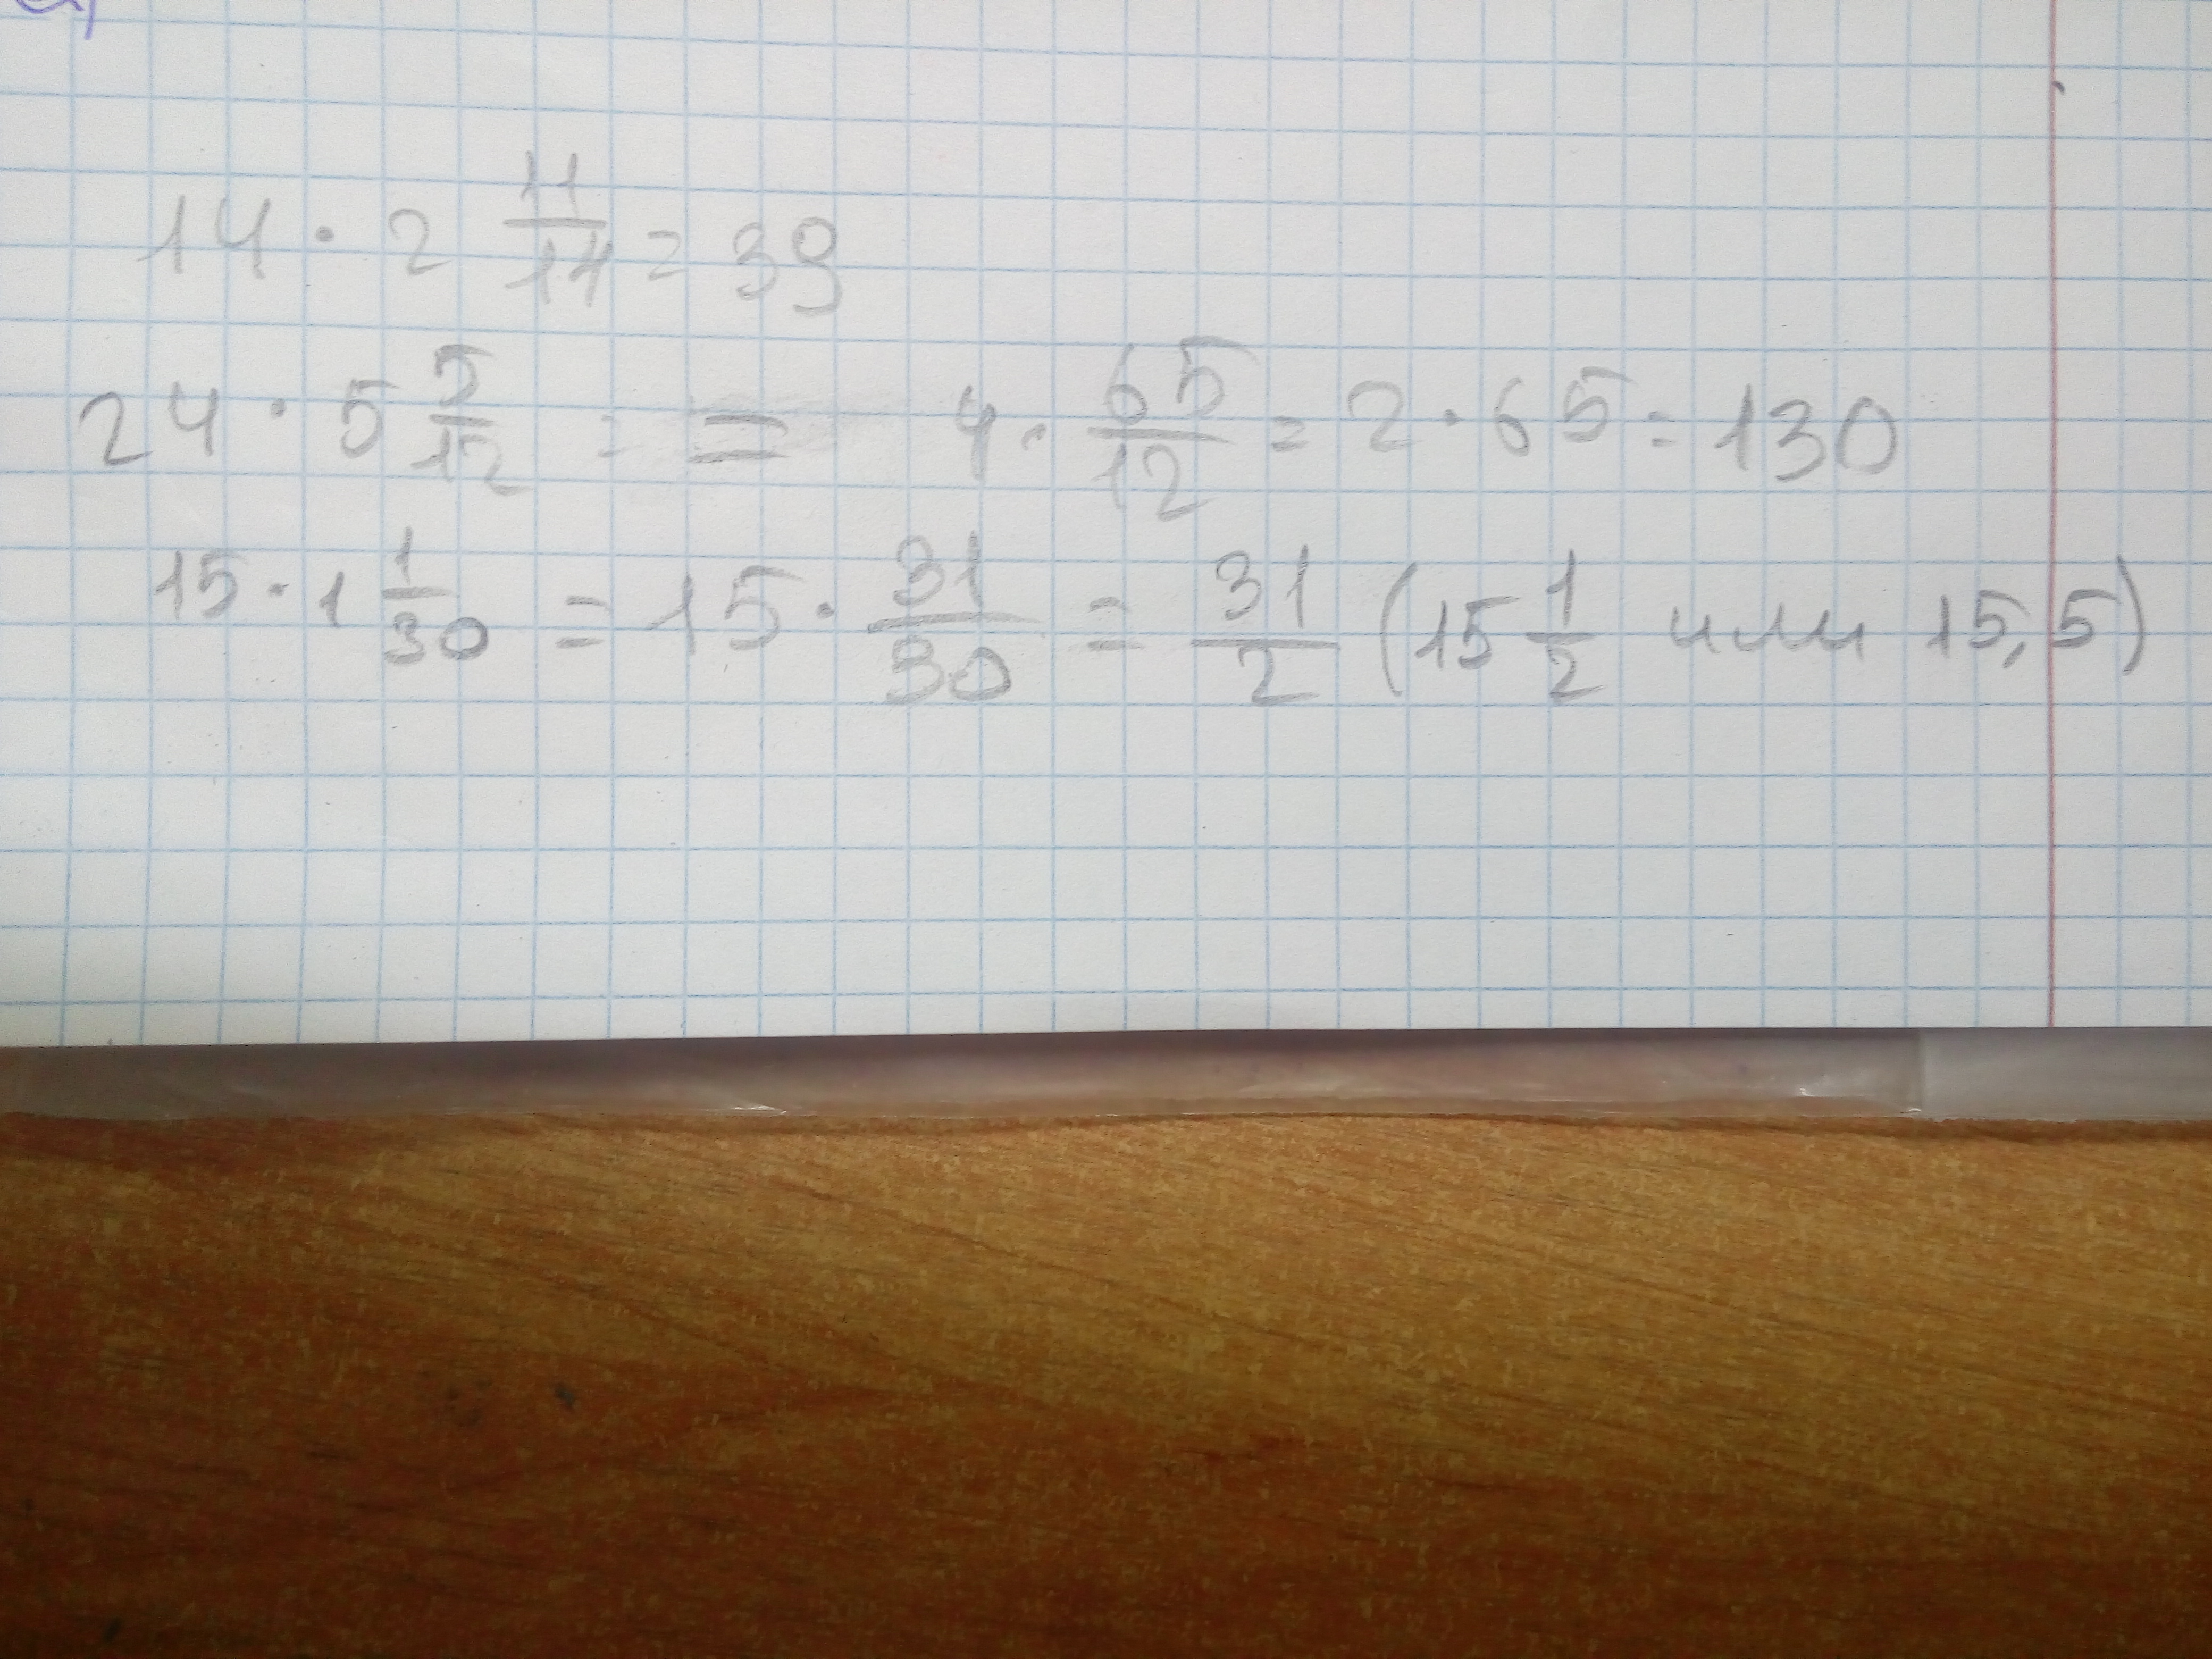 14 · 2 11/14 = 39
24 · 5 5/12 = = 4 · 65/12 = 2 · 65 = 130
15 · 1 1/30 = 15 · 31/30 = 31/2 (15 1/2 или 15,5)